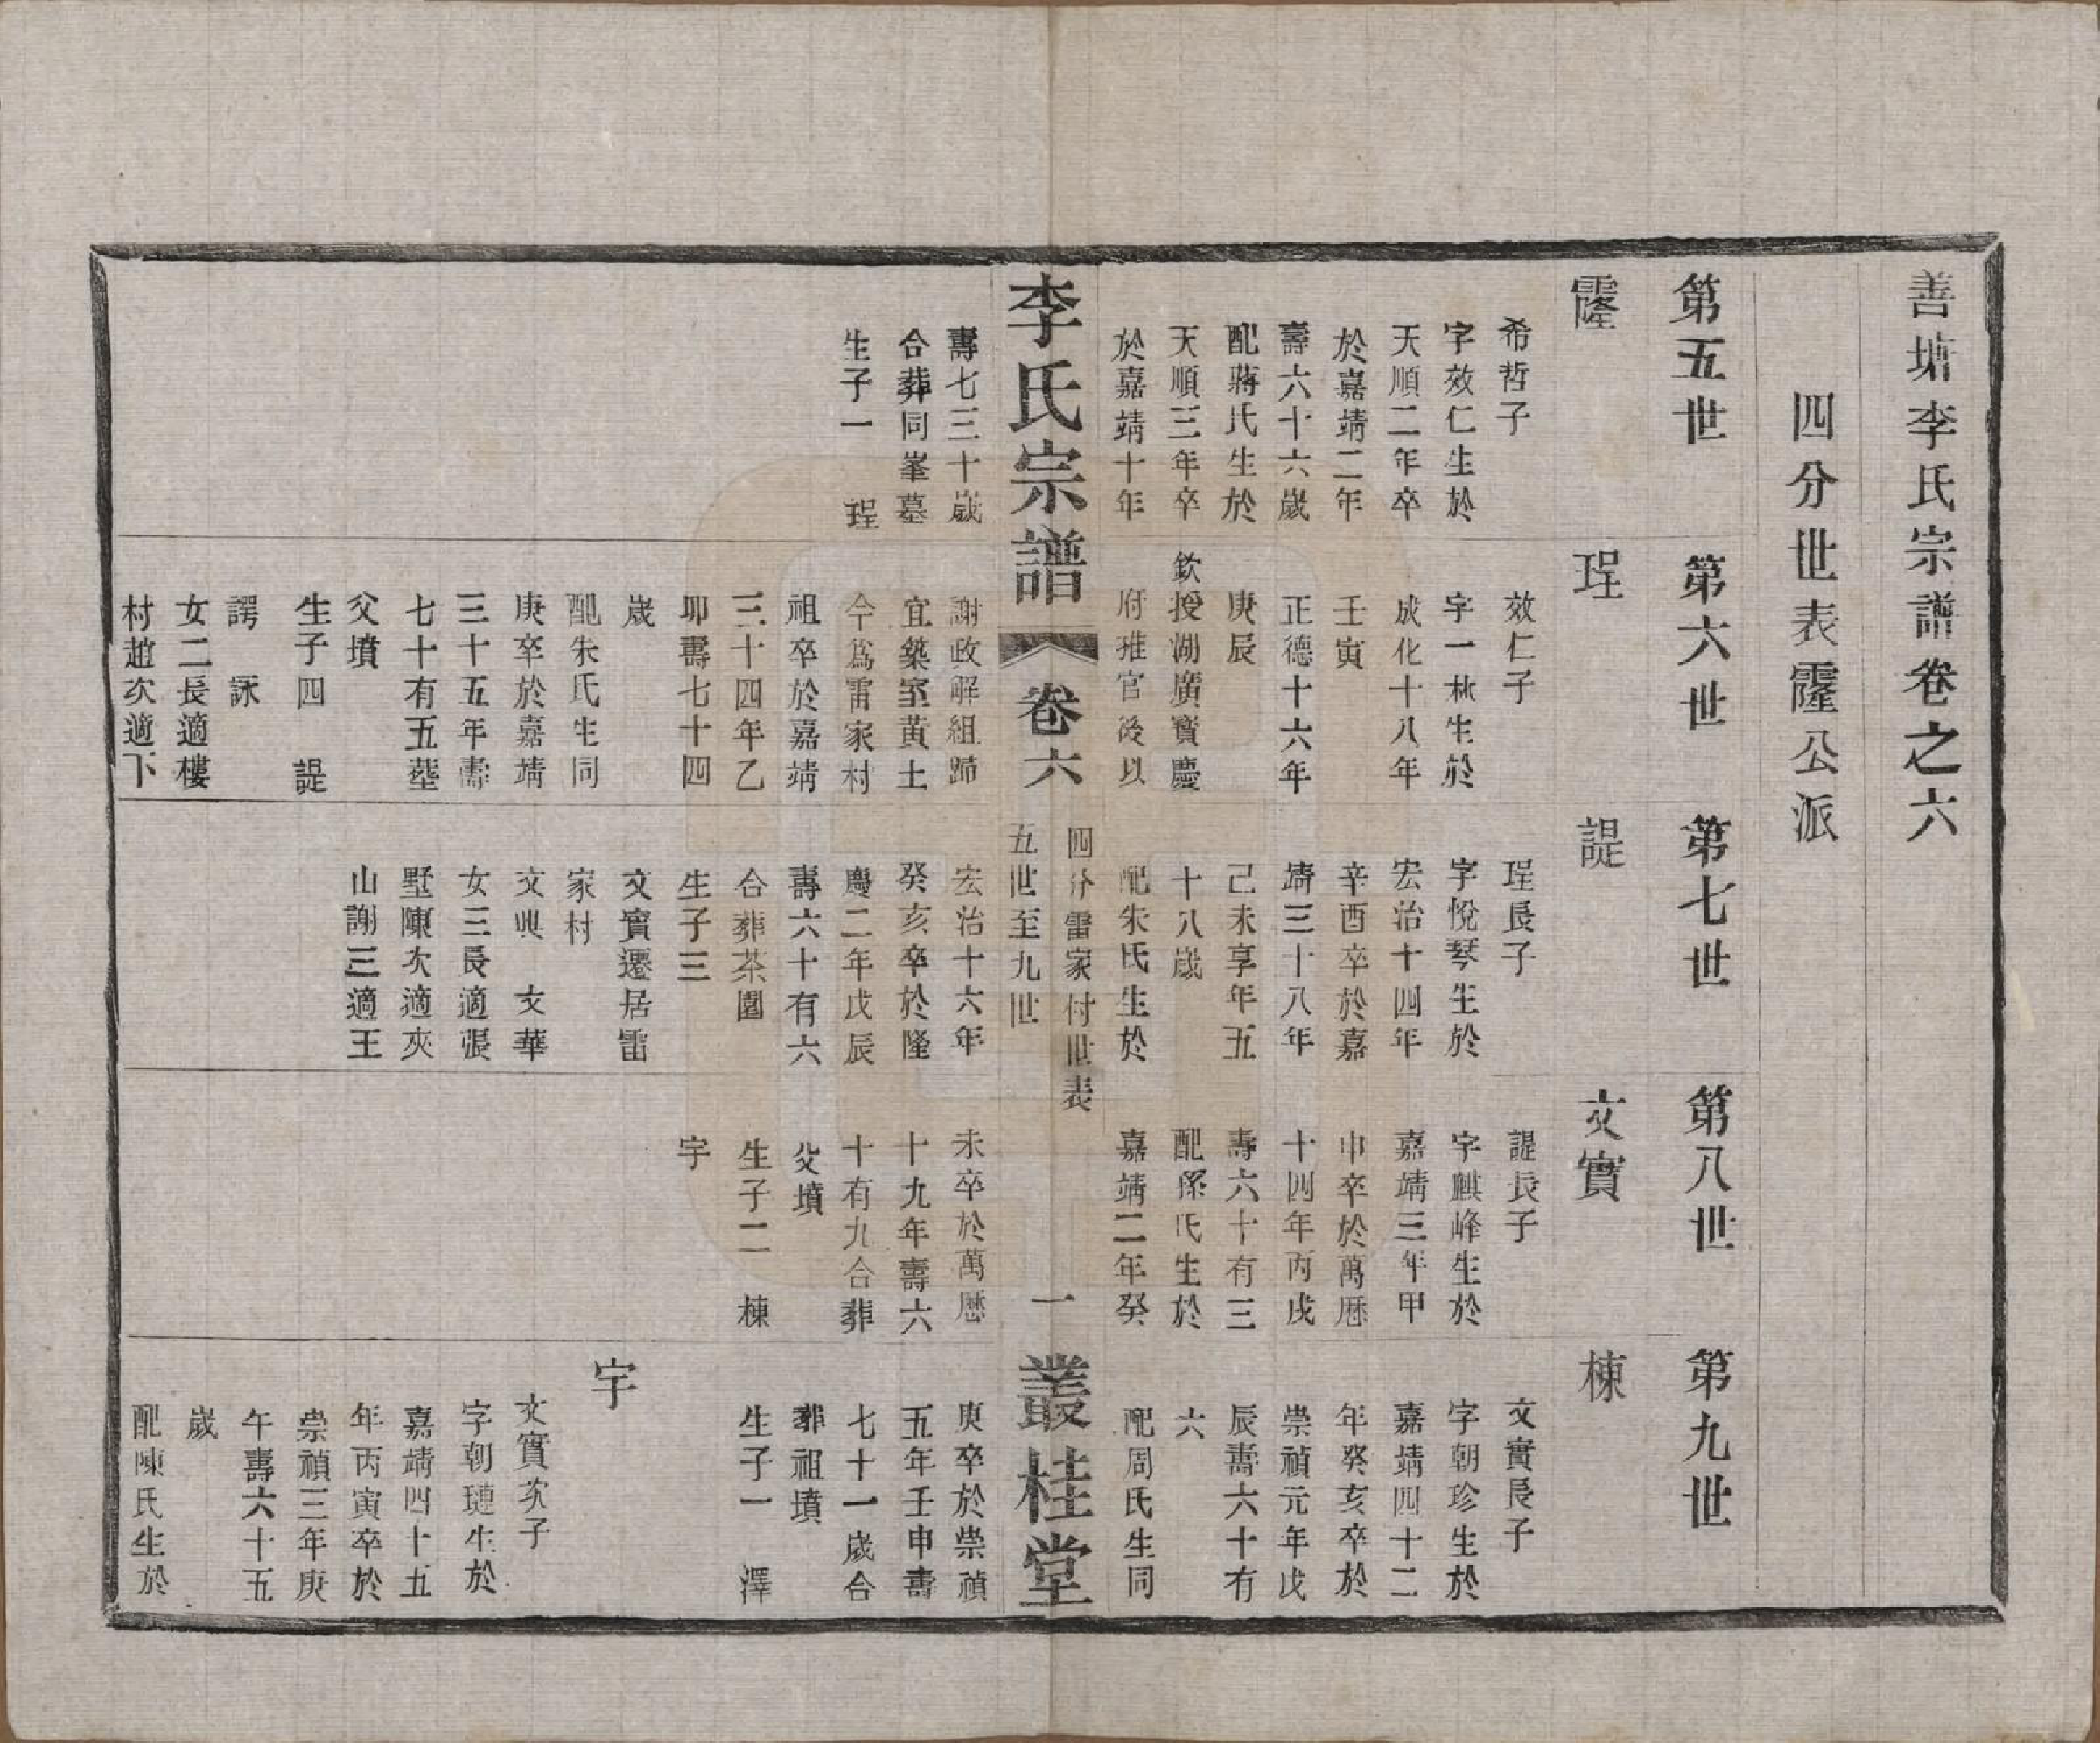 善塘李氏宗譜卷之六
四分世表霳公派
第五世
霳
希哲子
字效仁生於
天順二年卒
於嘉靖二年
壽六十六歲
配蔣氏生於
天順三年卒
於嘉靖十年
壽七三十歲
合葬同峯墓
生子一 珵
第六世
珵
效仁子
字一林生於
成化十八年
壬寅
正德十六年
庚辰
欽授湖廣寶慶
府推官後以
謝政解組歸
宜築室黃土
今爲雷家村
祖卒於嘉靖
三十四年乙
卯壽七十四
歲
配朱氏生同
庚卒於嘉靖
三十五年壽
七十有五塟
父墳
生子四 諟
諤 詠
女二長適樓
村趙次適下
第七世
諟
珵長子
字悅琴生於
宏治十四年
辛酉卒於嘉
靖三十八年
己未享年五
十八歲
配朱氏生於
宏治十六年
癸亥卒於隆
慶二年戊辰
壽六十有六
合葬茶園
生子三
文實遷居雷
家村
文興 文華
女三長適張
墅陳次適夾
山謝三適王
第八世
文實
諟長子
字麒峰生於
嘉靖三年甲
申卒於萬厯
十四年丙戌
壽六十有三
配孫氏生於
嘉靖二年癸
未卒於萬厯
十九年壽六
十有九合葬
父墳
生子二 棟
宇
第九世
棟
文實長子
字朝珍生於
嘉靖四十二
年癸亥卒於
崇禎元年戊
辰壽六十有
六
配周氏生同
庚卒於崇禎
五年壬申壽
七十一歲合
葬祖墳
生子一 澤
宇
文實次子
字朝璉生於
嘉靖四十五
年丙寅卒於
崇禎三年庚
午壽六十五
歲
配陳氏生於
李氏宗譜
卷六
四分雷家村世表
五世至九世
一
叢桂堂